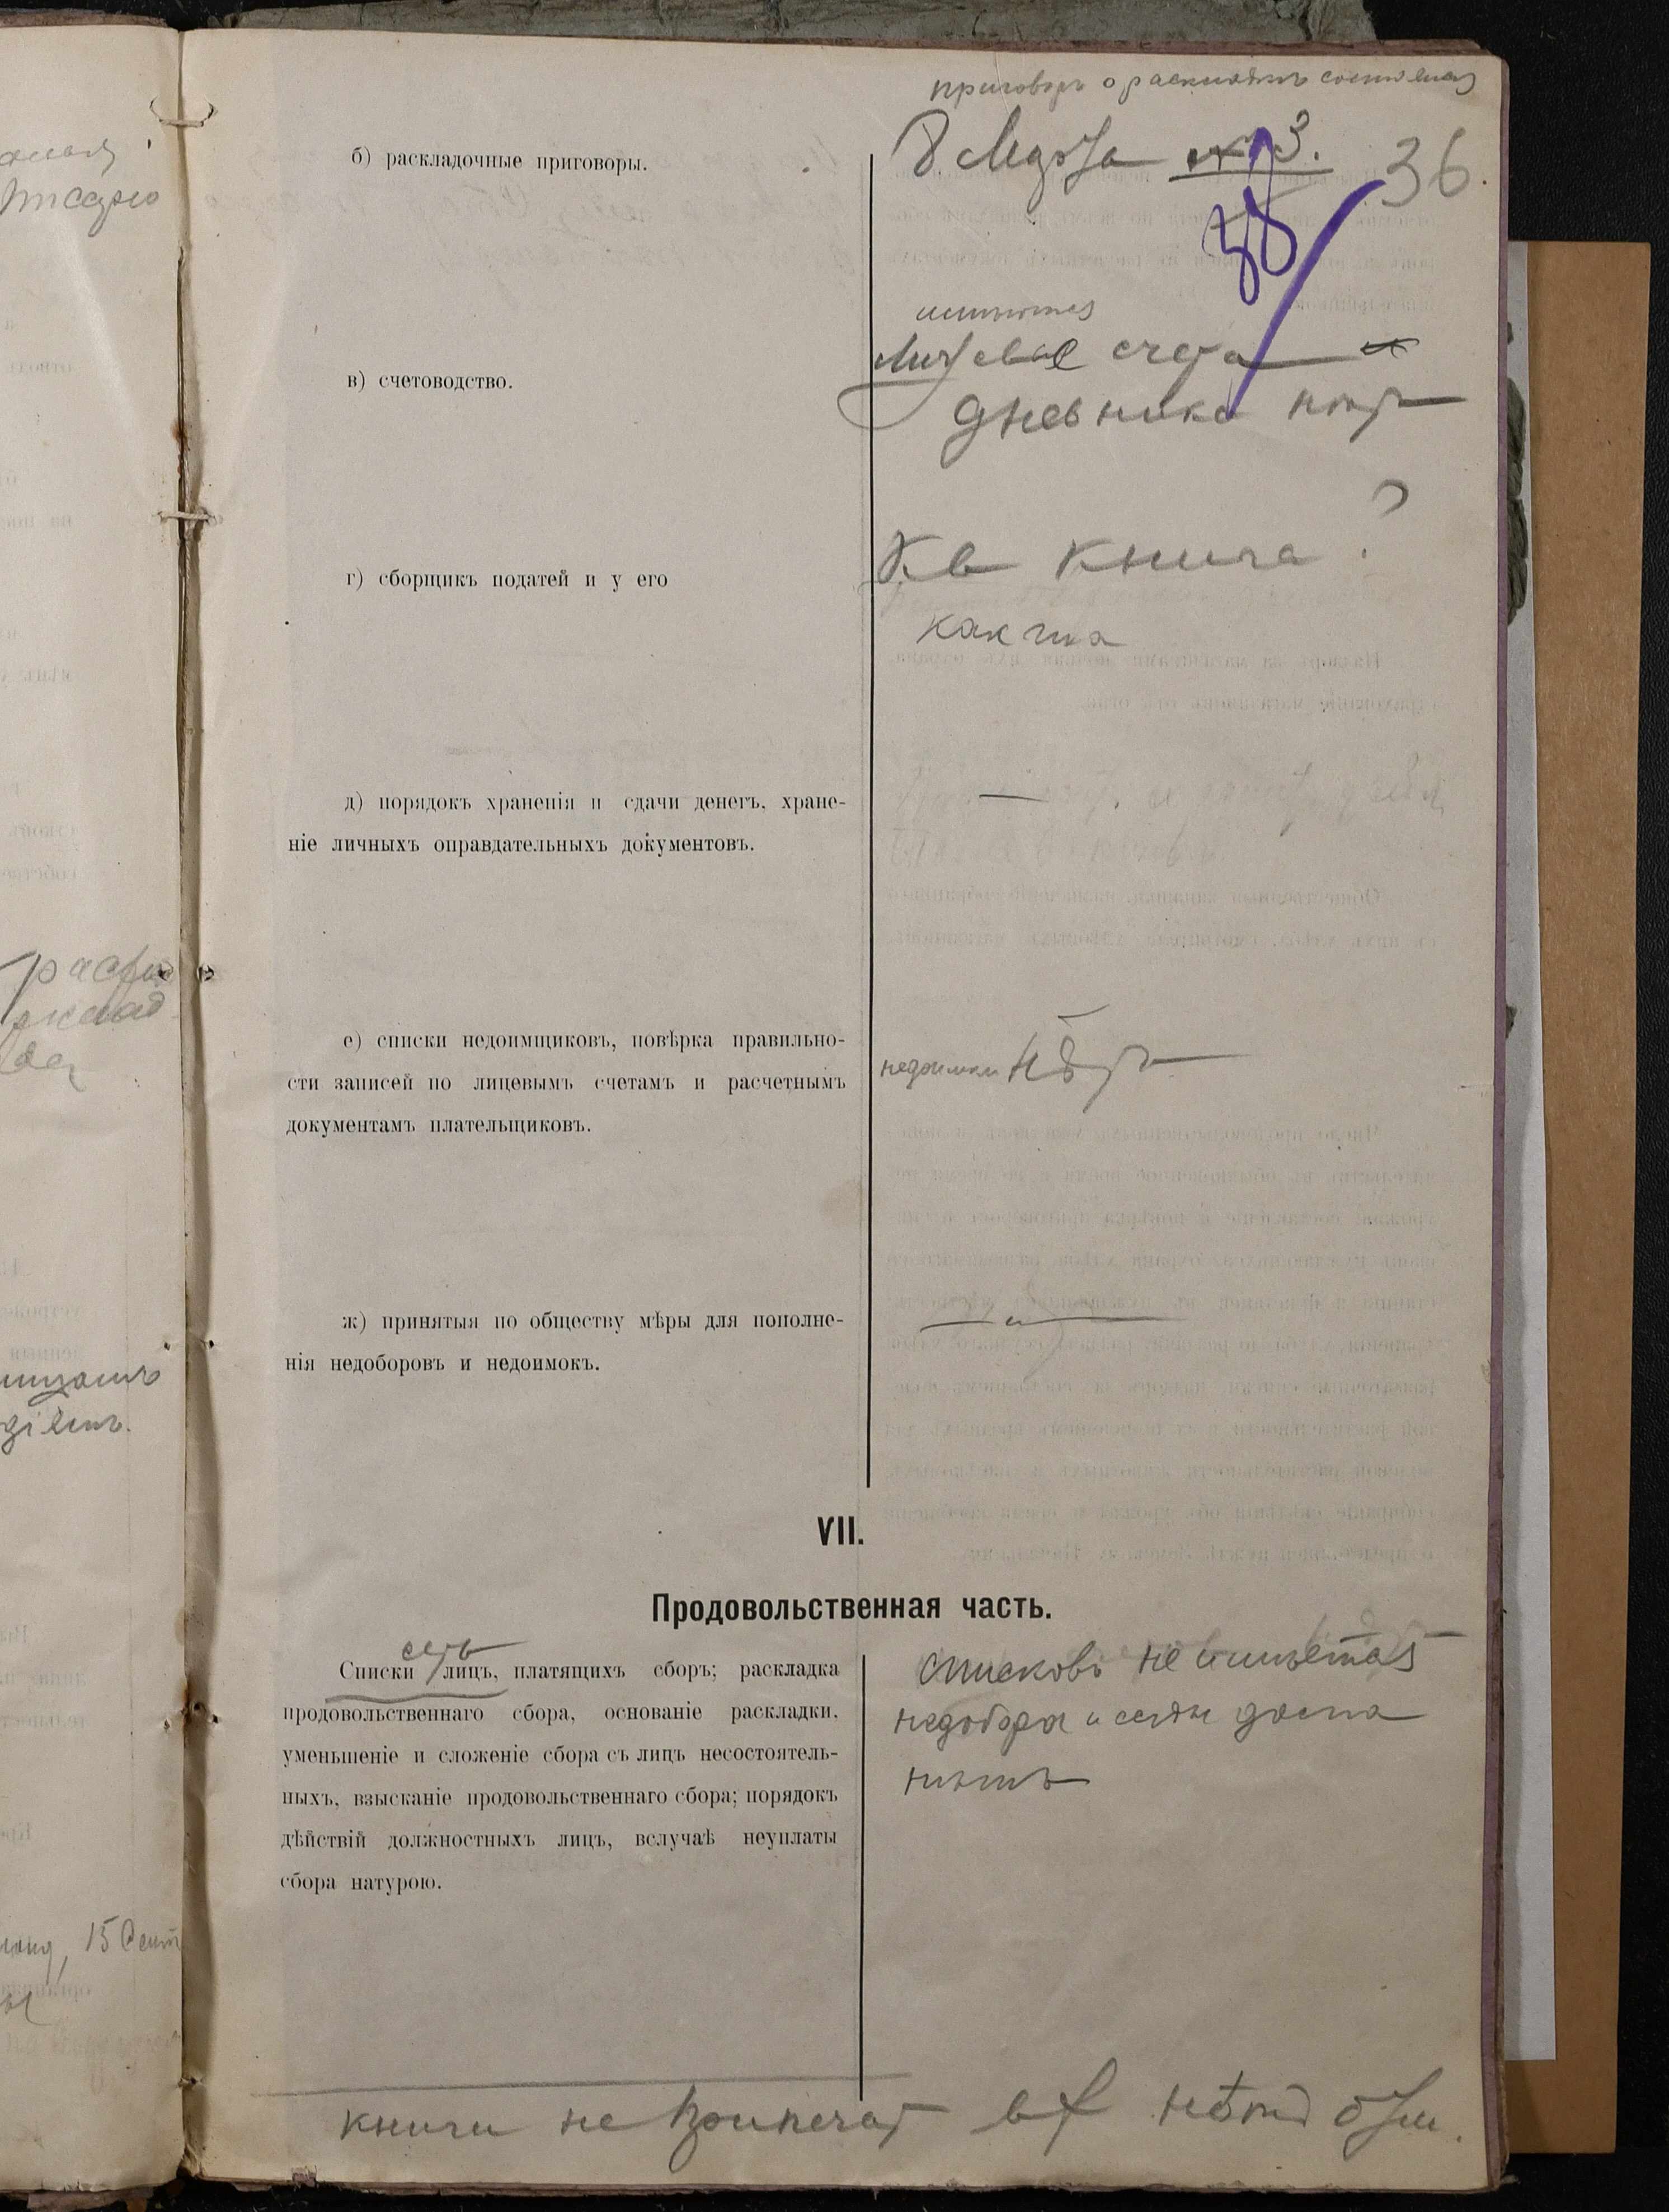 приговоръ о раскладкѣ составленъ
б) раскладочные приговоры.
8 Марта № 3.
36
38
имѣются
в) счетоводство.
Лицевые счета
дневника нѣтъ
г) сборщикъ податей и у его
Кв книга ?
д) порядокъ храненія и сдачи денегъ, хране-
ніе личныхъ оправдательныхъ документовъ.
—
е) списки недоимщиковъ, повѣрка правильно-
сти записей по лицевымъ счетамъ и расчетнымъ
документамъ плательщиковъ.
недоимки нѣтъ
ж) принятыя по обществу мѣры для пополне-
нія недоборовъ и недоимокъ.
VII.
Продовольственная часть.
есть
Списки лицъ, платящихъ сборъ; раскладка
продовольственнаго сбора, основаніе раскладки,
уменьшеніе и сложеніе сбора съ лицъ несостоятель-
ныхъ, взысканіе продовольственнаго сбора; порядокъ
дѣйствій должностныхъ лицъ, вслучаѣ неуплаты
сбора натурою.
списковъ не имѣется
недобора и
нѣтъ
книги не
15 Сент